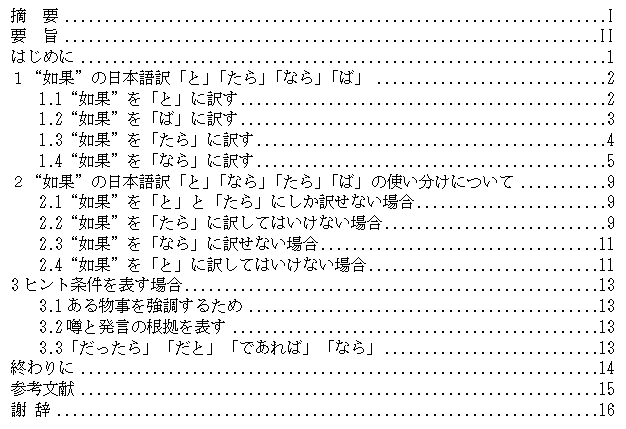 摘　要......................................................................I
要　旨.....................................................................II
はじめに....................................................................1
1 “如果”の日本語訳「と」「たら」「なら」「ば」 ............................2
1.1“如果”を「と」に訳す..............................................2
1.2“如果”を「ば」に訳す..............................................3
1.3“如果”を「たら」に訳す............................................4
1.4“如果”を「なら」に訳す............................................5
2 “如果”の日本語訳「と」「なら」「たら」「ば」の使い分けについて ..........9
2.1“如果”を「と」と「たら」にしか訳せない場合........................9
2.2“如果”を「たら」に訳してはいけない場合............................9
2.3“如果”を「なら」に訳せない場合...................................11
2.4“如果”を「と」に訳してはいけない場合.............................11
3ヒント条件を表す場合......................................................13
3.1ある物事を強調するため.............................................13
3.2噂と発言の根拠を表す...............................................13
3.3「だったら」「だと」「であれば」「なら」...........................13
終わりに...................................................................14
参考文献...................................................................15
謝 辞......................................................................16